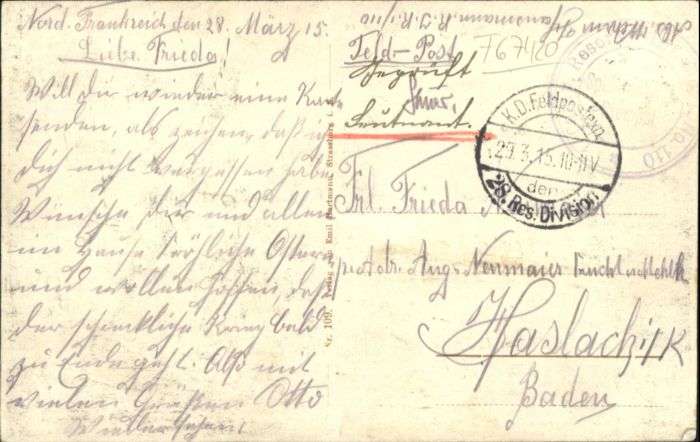 Nord. Frankreich den 28. März 15.
Liebe Frieda!
Will dir wieder eine Karte
senden, als zeichen, daß ich
dich nicht vergessen habe.
Wünsche Dir und allen
im Hause fröhliche Ostern
und wollen hoffen, daß
der schreckliche Krieg bald
zu Ende geht. Also mit
vielen Grüßen Otto
Wiedersehen!
Feld-Post
767420
Geprüft
Leutnant.
K.D. Feldpostexp.
29.3.15.10-11V
der
28. Res. Division
110
Frl. Frieda
Aug. Neumaier
Haslach i/K
Baden
Nr. 109. Verlag von Emil Hartmann, Strassburg i.